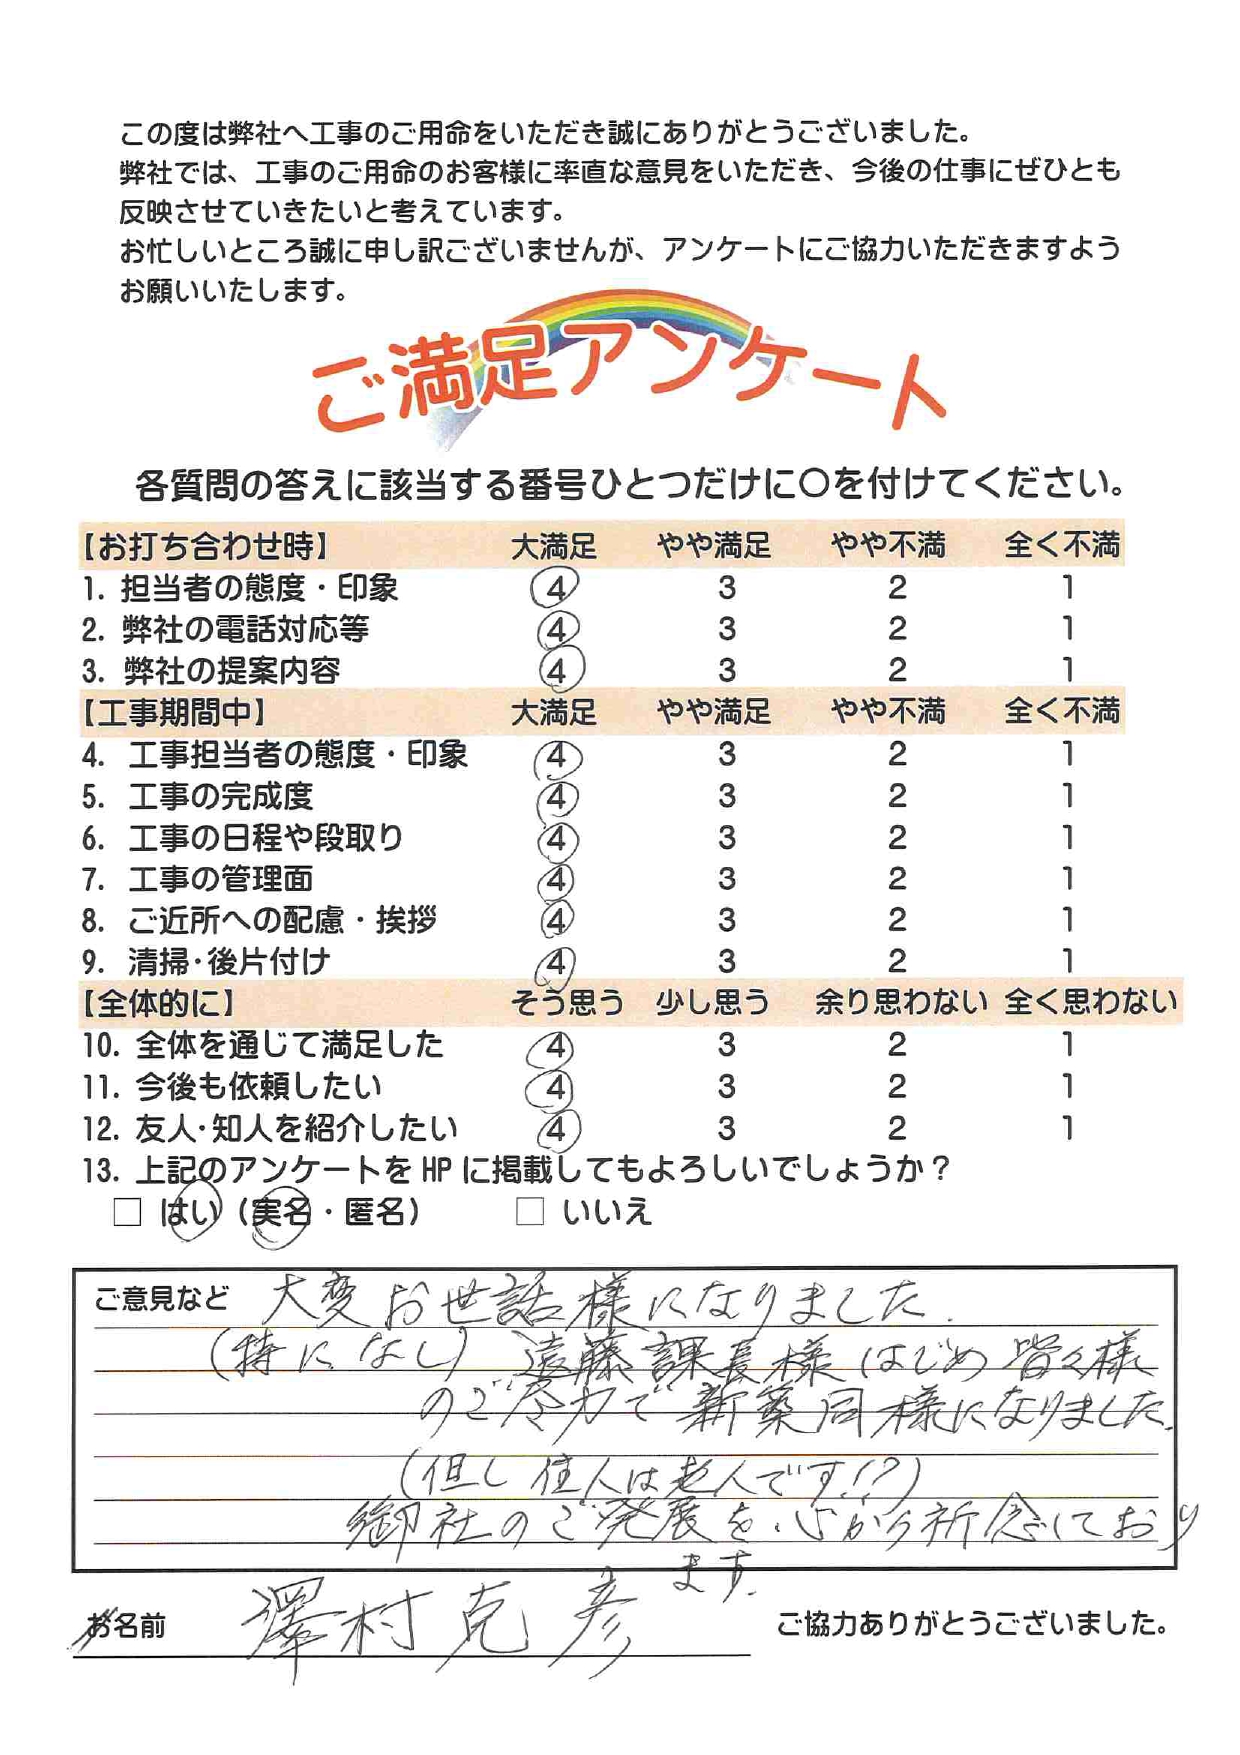 この度は弊社へ工事のご用命をいただき誠にありがとうございました。
弊社では、工事のご用命のお客様に率直な意見をいただき、今後の仕事にぜひとも
反映させていきたいと考えています。
お忙しいところ誠に申し訳ございませんが、アンケートにご協力いただきますよう
お願いいたします。
ご満足アンケート
各質問の答えに該当する番号ひとつだけに〇を付けてください。
【お打ち合わせ時】 大満足 やや満足 やや不満 全く不満
1. 担当者の態度・印象 4 3 2 1
2. 弊社の電話対応等 4 3 2 1
3. 弊社の提案内容 4 3 2 1
【工事期間中】 大満足 やや満足 やや不満 全く不満
4. 工事担当者の態度・印象 4 3 2 1
5. 工事の完成度 4 3 2 1
6. 工事の日程や段取り 4 3 2 1
7. 工事の管理面 4 3 2 1
8. ご近所への配慮・挨拶 4 3 2 1
9. 清掃・後片付け 4 3 2 1
【全体的に】 そう思う 少し思う 余り思わない 全く思わない
10. 全体を通じて満足した 4 3 2 1
11. 今後も依頼したい 4 3 2 1
12. 友人・知人を紹介したい 4 3 2 1
13. 上記のアンケートをHPに掲載してもよろしいでしょうか？
□ はい（実名・匿名） □ いいえ
ご意見など 大変お世話様になりました.
(特になし) 遠藤課長様はじめ皆々様
のご尽力で新築同様になりました.
(但し住人は老人です!?)
御社のご発展を心から祈念しており
ます.
お名前 澤村克彦 ご協力ありがとうございました。